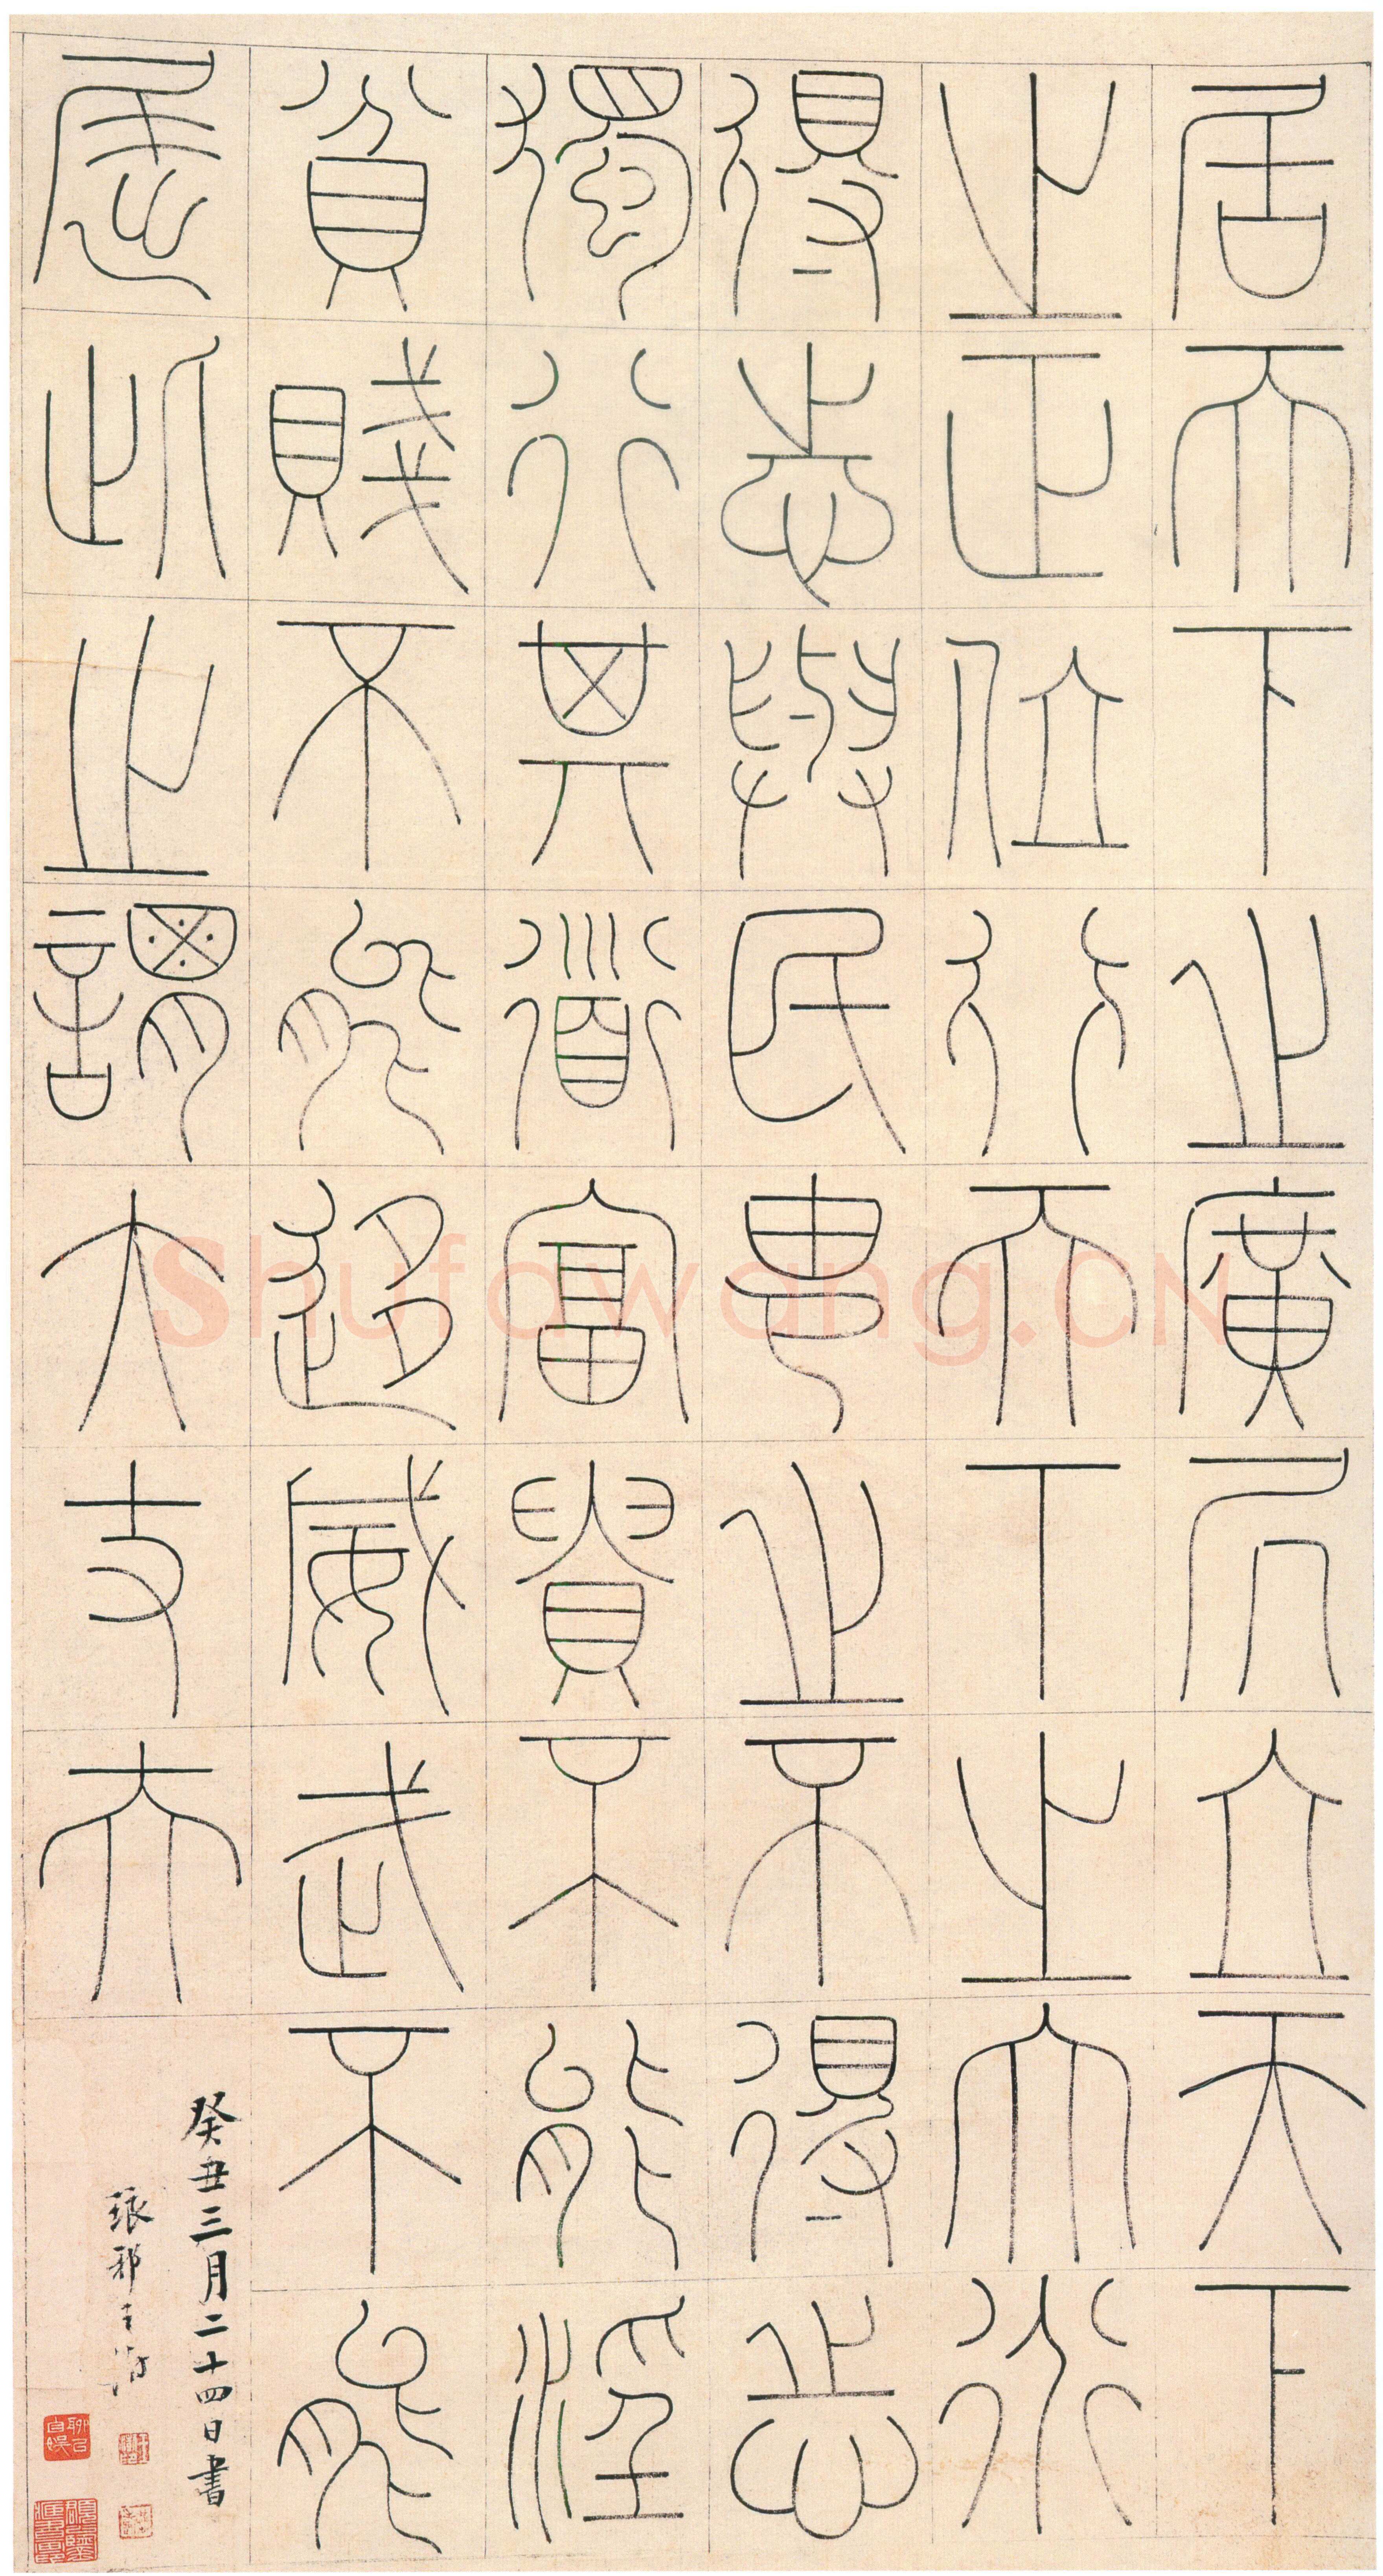 居天下之廣居立天下
之正位行天下之大道
得志與民由之不得志
獨行其道富貴不能淫
貧賤不能移威武不能
屈此之謂大丈夫
癸丑三月二十四日書
琅邪王澍
聊以自娛
Shufawang.CN